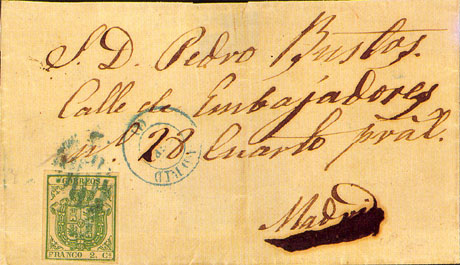 S. D. Pedro Bustos.
Calle de Embajadores
nº 28 Cuarto pral.
Madrid
MADRID
CORREOS
FRANCO 2. Cs